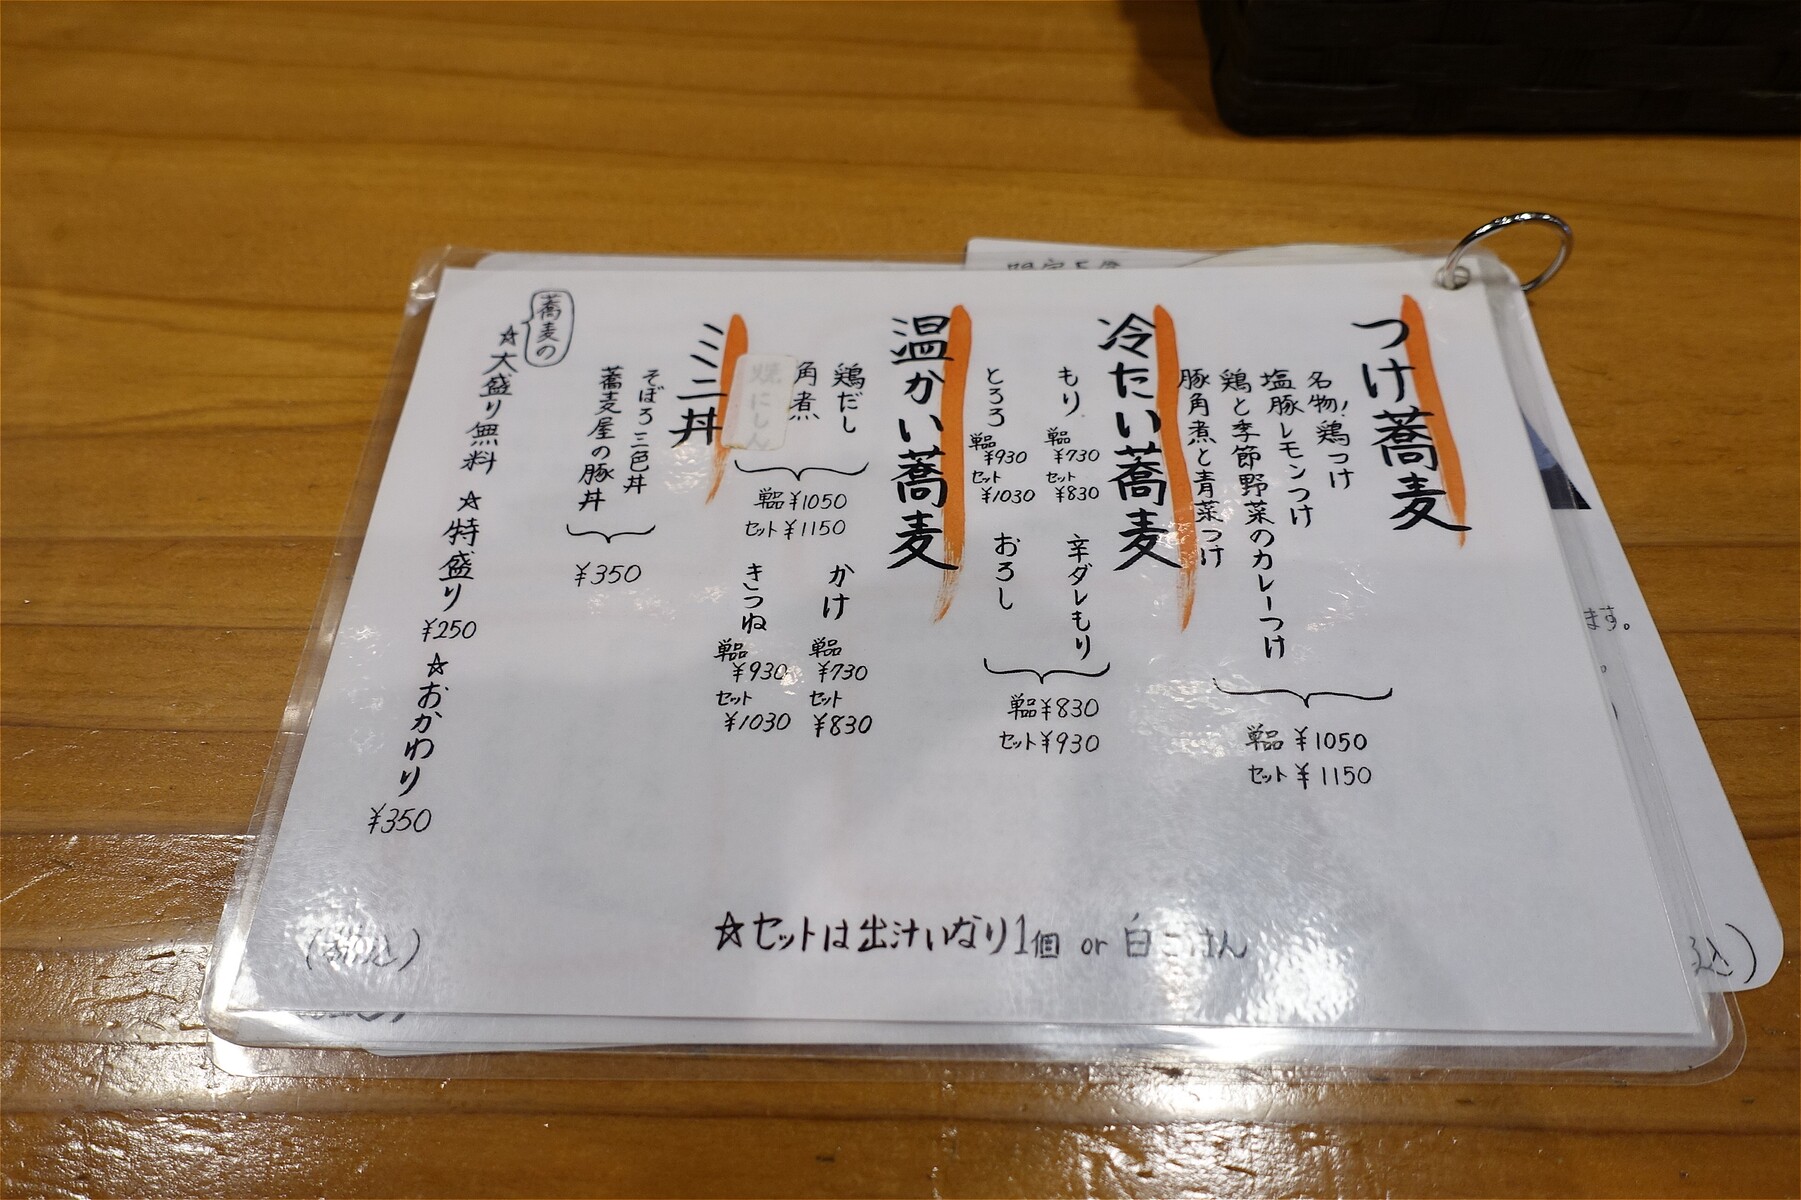 つけ蕎麦
名物!鶏つけ
塩豚レモンつけ
鶏と季節野菜のカレーつけ
豚角煮と青菜つけ
単品 ¥1050
セット ¥1150
冷たい蕎麦
もり
単品
¥730
セット
¥830
とろろ
単品
¥930
セット
¥1030
辛ダレもり
おろし
単品 ¥830
セット ¥930
温かい蕎麦
鶏だし
角煮
焼にしん
単品 ¥1050
セット ¥1150
かけ
単品
¥730
セット
¥830
きつね
単品
¥930
セット
¥1030
ミニ丼
そぼろ三色丼
蕎麦屋の豚丼
¥350
蕎麦の
☆大盛り無料 ☆特盛り ¥250 ☆おかわり ¥350
☆セットは出汁いなり1個 or 白ごはん
(税込)
ます。
込)